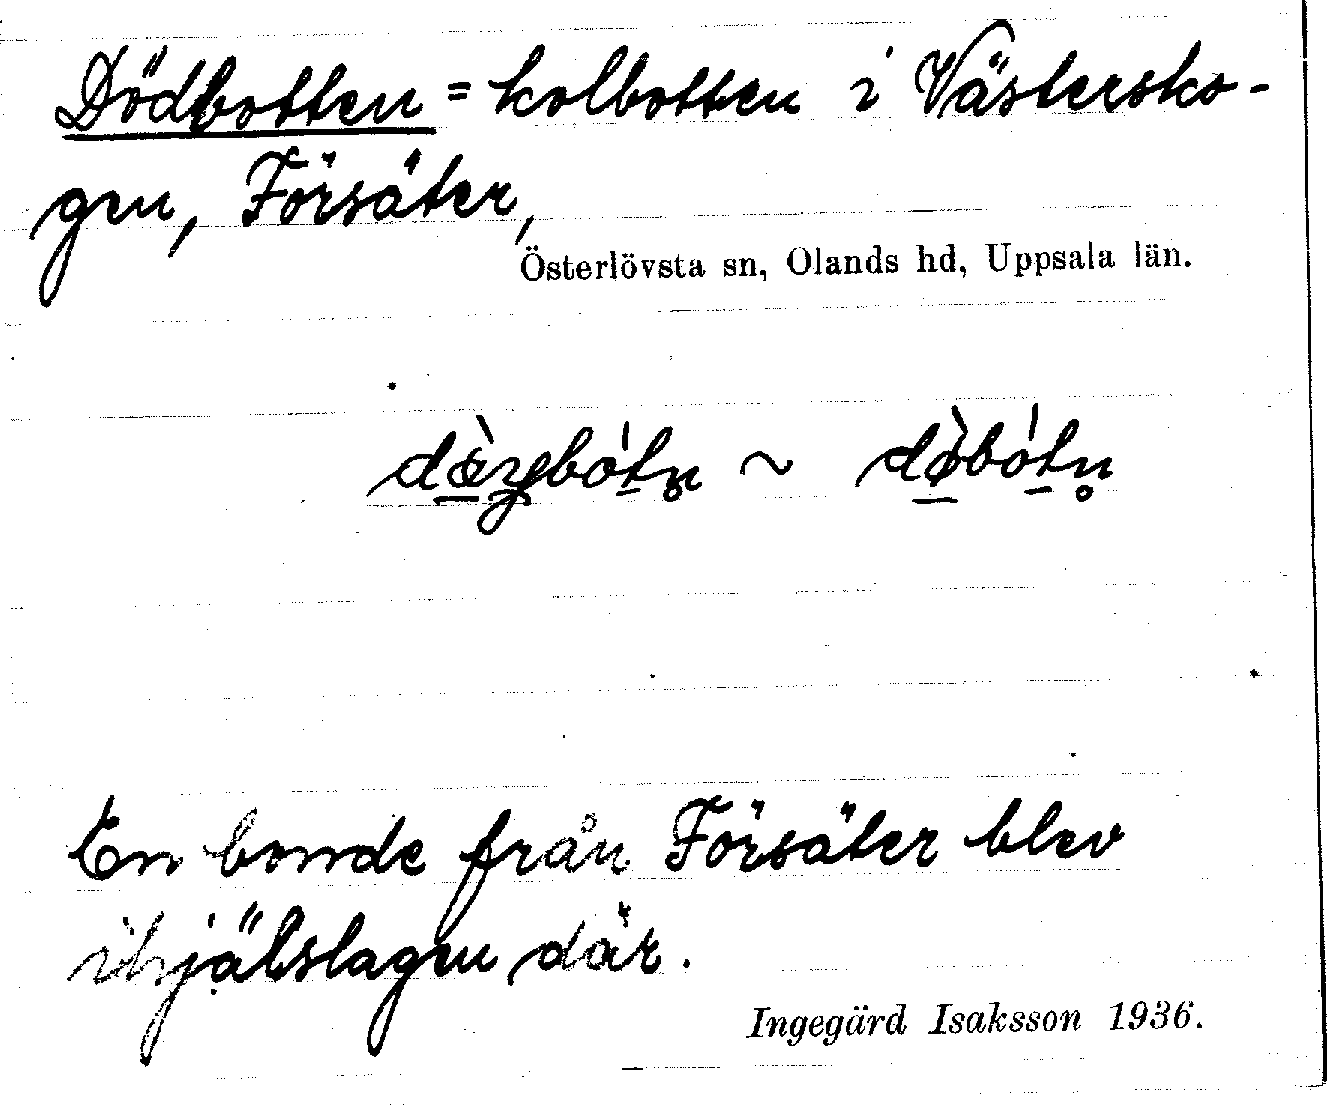 Dödbotten = kolbotten i Västersko-
gen, Försäter,
Österlövsta sn, Olands hd, Uppsala län.
~
En bonde från Försäter blev
ihjälslagen där.
Ingegärd Isaksson 1936.